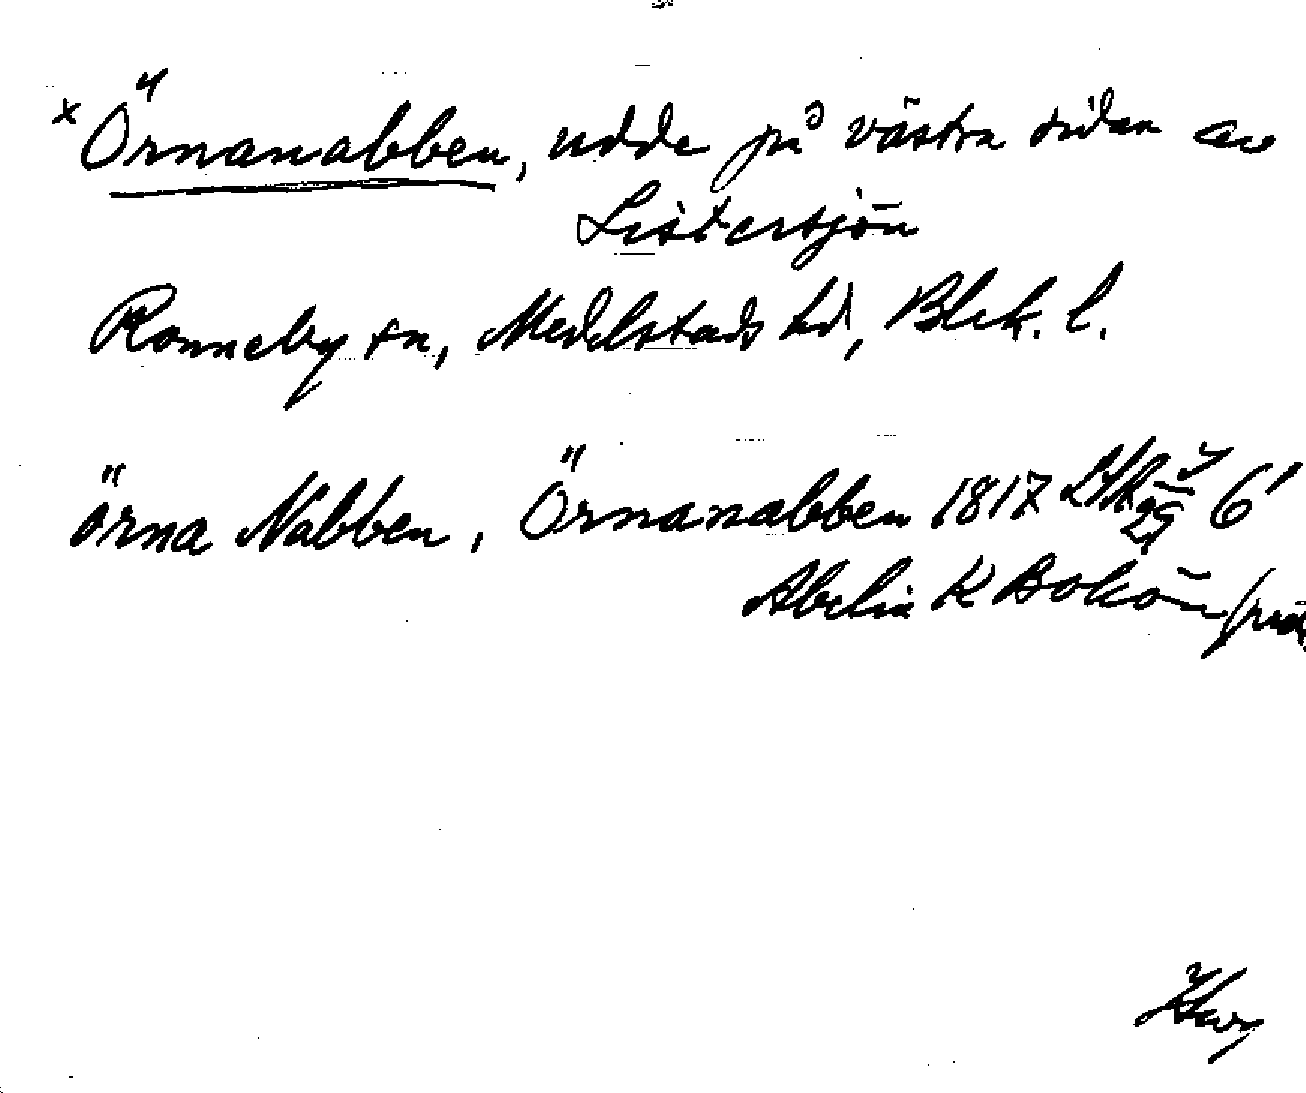 x Örnanabben, udde på västra sidan av
Listersjön
Ronneby sn, Medelstads hd, Blek. l.
örna Nabben, Örnanabben 1817 LSA 29 6'
Abelin K Bökön